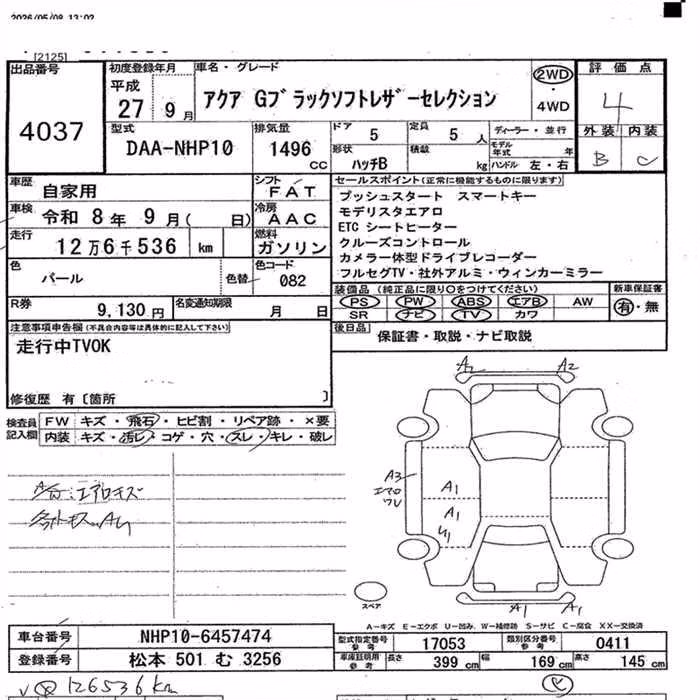 2026/05/08 13:02
[2125]
出品番号
4037
初度登録年月
平成
27年 9月
車名・グレード
アクア Gブラックソフトレザーセレクション
2WD
・
4WD
評価点
4
外装 内装
B C
型式
DAA-NHP10
排気量
1496 CC
ドア 5
定員 5人
形状 ハッチB
積載 kg
ディーラー・並行
モデル年式 年
ハンドル 左・右
車歴
自家用
シフト FAT
車検
令和 8年 9月( 日)
冷房 AAC
走行
12万6千536 km
燃料 ガソリン
色
パール
色替
色コード 082
R券 9,130円
名変通知期限 月 日
セールスポイント(正常に機能するものに限ります)
プッシュスタート スマートキー
モデリスタエアロ
ETC シートヒーター
クルーズコントロール
カメラー体型ドライブレコーダー
フルセグTV・社外アルミ・ウィンカーミラー
装備品 (純正品に限り○をつけてください)
新車保証書
PS PW ABS エアB AW
SR ナビ TV カワ
有・無
後日品
保証書・取説・ナビ取説
注意事項申告欄(不具合内容等は具体的に記入して下さい)
走行中TVOK
修復歴 有〔箇所 〕
検査員記入欄
FW キズ・飛石・ヒビ割・リペア跡・×要
内装 キズ・汚レ・コゲ・穴・スレ・キレ・破レ
エアロキズ
A2
A3
エアロ
ワレ
A1
A1
A1
A1
スペア
A-キズ E-エクボ U-凹み W-補修跡 S-サビ C-腐食 XX-交換済
車台番号 NHP10-6457474
登録番号 松本 501 む 3256
型式指定番号参考 17053
類別区分番号参考 0411
車庫証明用参考 長さ 399 cm 幅 169 cm 高さ 145 cm
126536km